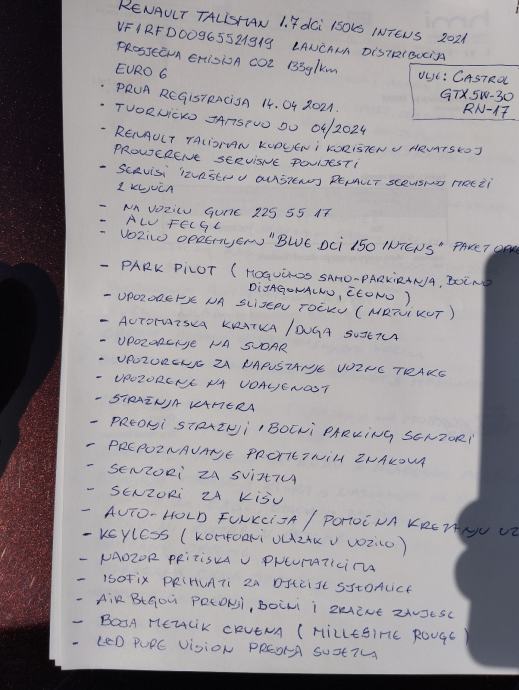 RENAULT TALISMAN 1.7 dCi 150ks INTENS 2021
VF1RFD00965521919 LANČANA DISTRIBUCIJA
PROSJEČNA EMISIJA CO2 133g/km
EURO 6
ULJE: CASTROL
GTX 5W-30
RN-17
- PRVA REGISTRACIJA 14.04 2021.
- TVORNIČKO JAMSTVO DO 04/2024
- RENAULT TALISMAN KUPLJEN I KORIŠTEN U HRVATSKOJ
PROVJERENE SERVISNE POVIJESTI
- SERVISI IZVRŠENI U OVLAŠTENOJ RENAULT SERVISNOJ MREŽI
2 KLJUČA
- NA VOZILU GUME 225 55 17
- ALU FELGE
- VOZILO OPREMLJENO "BLUE DCI 150 INTENS" PAKET OPRE
- PARK PILOT ( MOGUĆNOS SAMO-PARKIRANJA, BOČNO
DIJAGONALNO, ČEONO )
- UPOZORENJE NA SLIJEPU TOČKU ( MRTVI KUT )
- AUTOMATSKA KRATKA / DUGA SVJETLA
- UPOZORENJE NA SUDAR
- UPOZORENJE ZA NAPUŠTANJE VOZNE TRAKE
- UPOZORENJE NA UDALJENOST
- STRAŽNJA KAMERA
- PREDNJI STRAŽNJI I BOČNI PARKING SENZORI
- PREPOZNAVANJE PROMETNIH ZNAKOVA
- SENZORI ZA SVIJETLA
- SENZORI ZA KIŠU
- AUTO-HOLD FUNKCIJA / POMOĆ NA KRETANJU UZ
- KEYLESS ( KOMFORNI ULAZAK U VOZILO )
- NADZOR PRITISKA U PNEUMATICIMA
- ISOFIX PRIHVATI ZA DJEČIJE SJEDALICE
- AIR BEGOVI PREDNJI, BOČNI I ZRAČNE ZAVJESE
- BOJA METALIK CRVENA ( MILLESIME ROUGE )
- LED PURE VISION PREDNJA SVJETLA